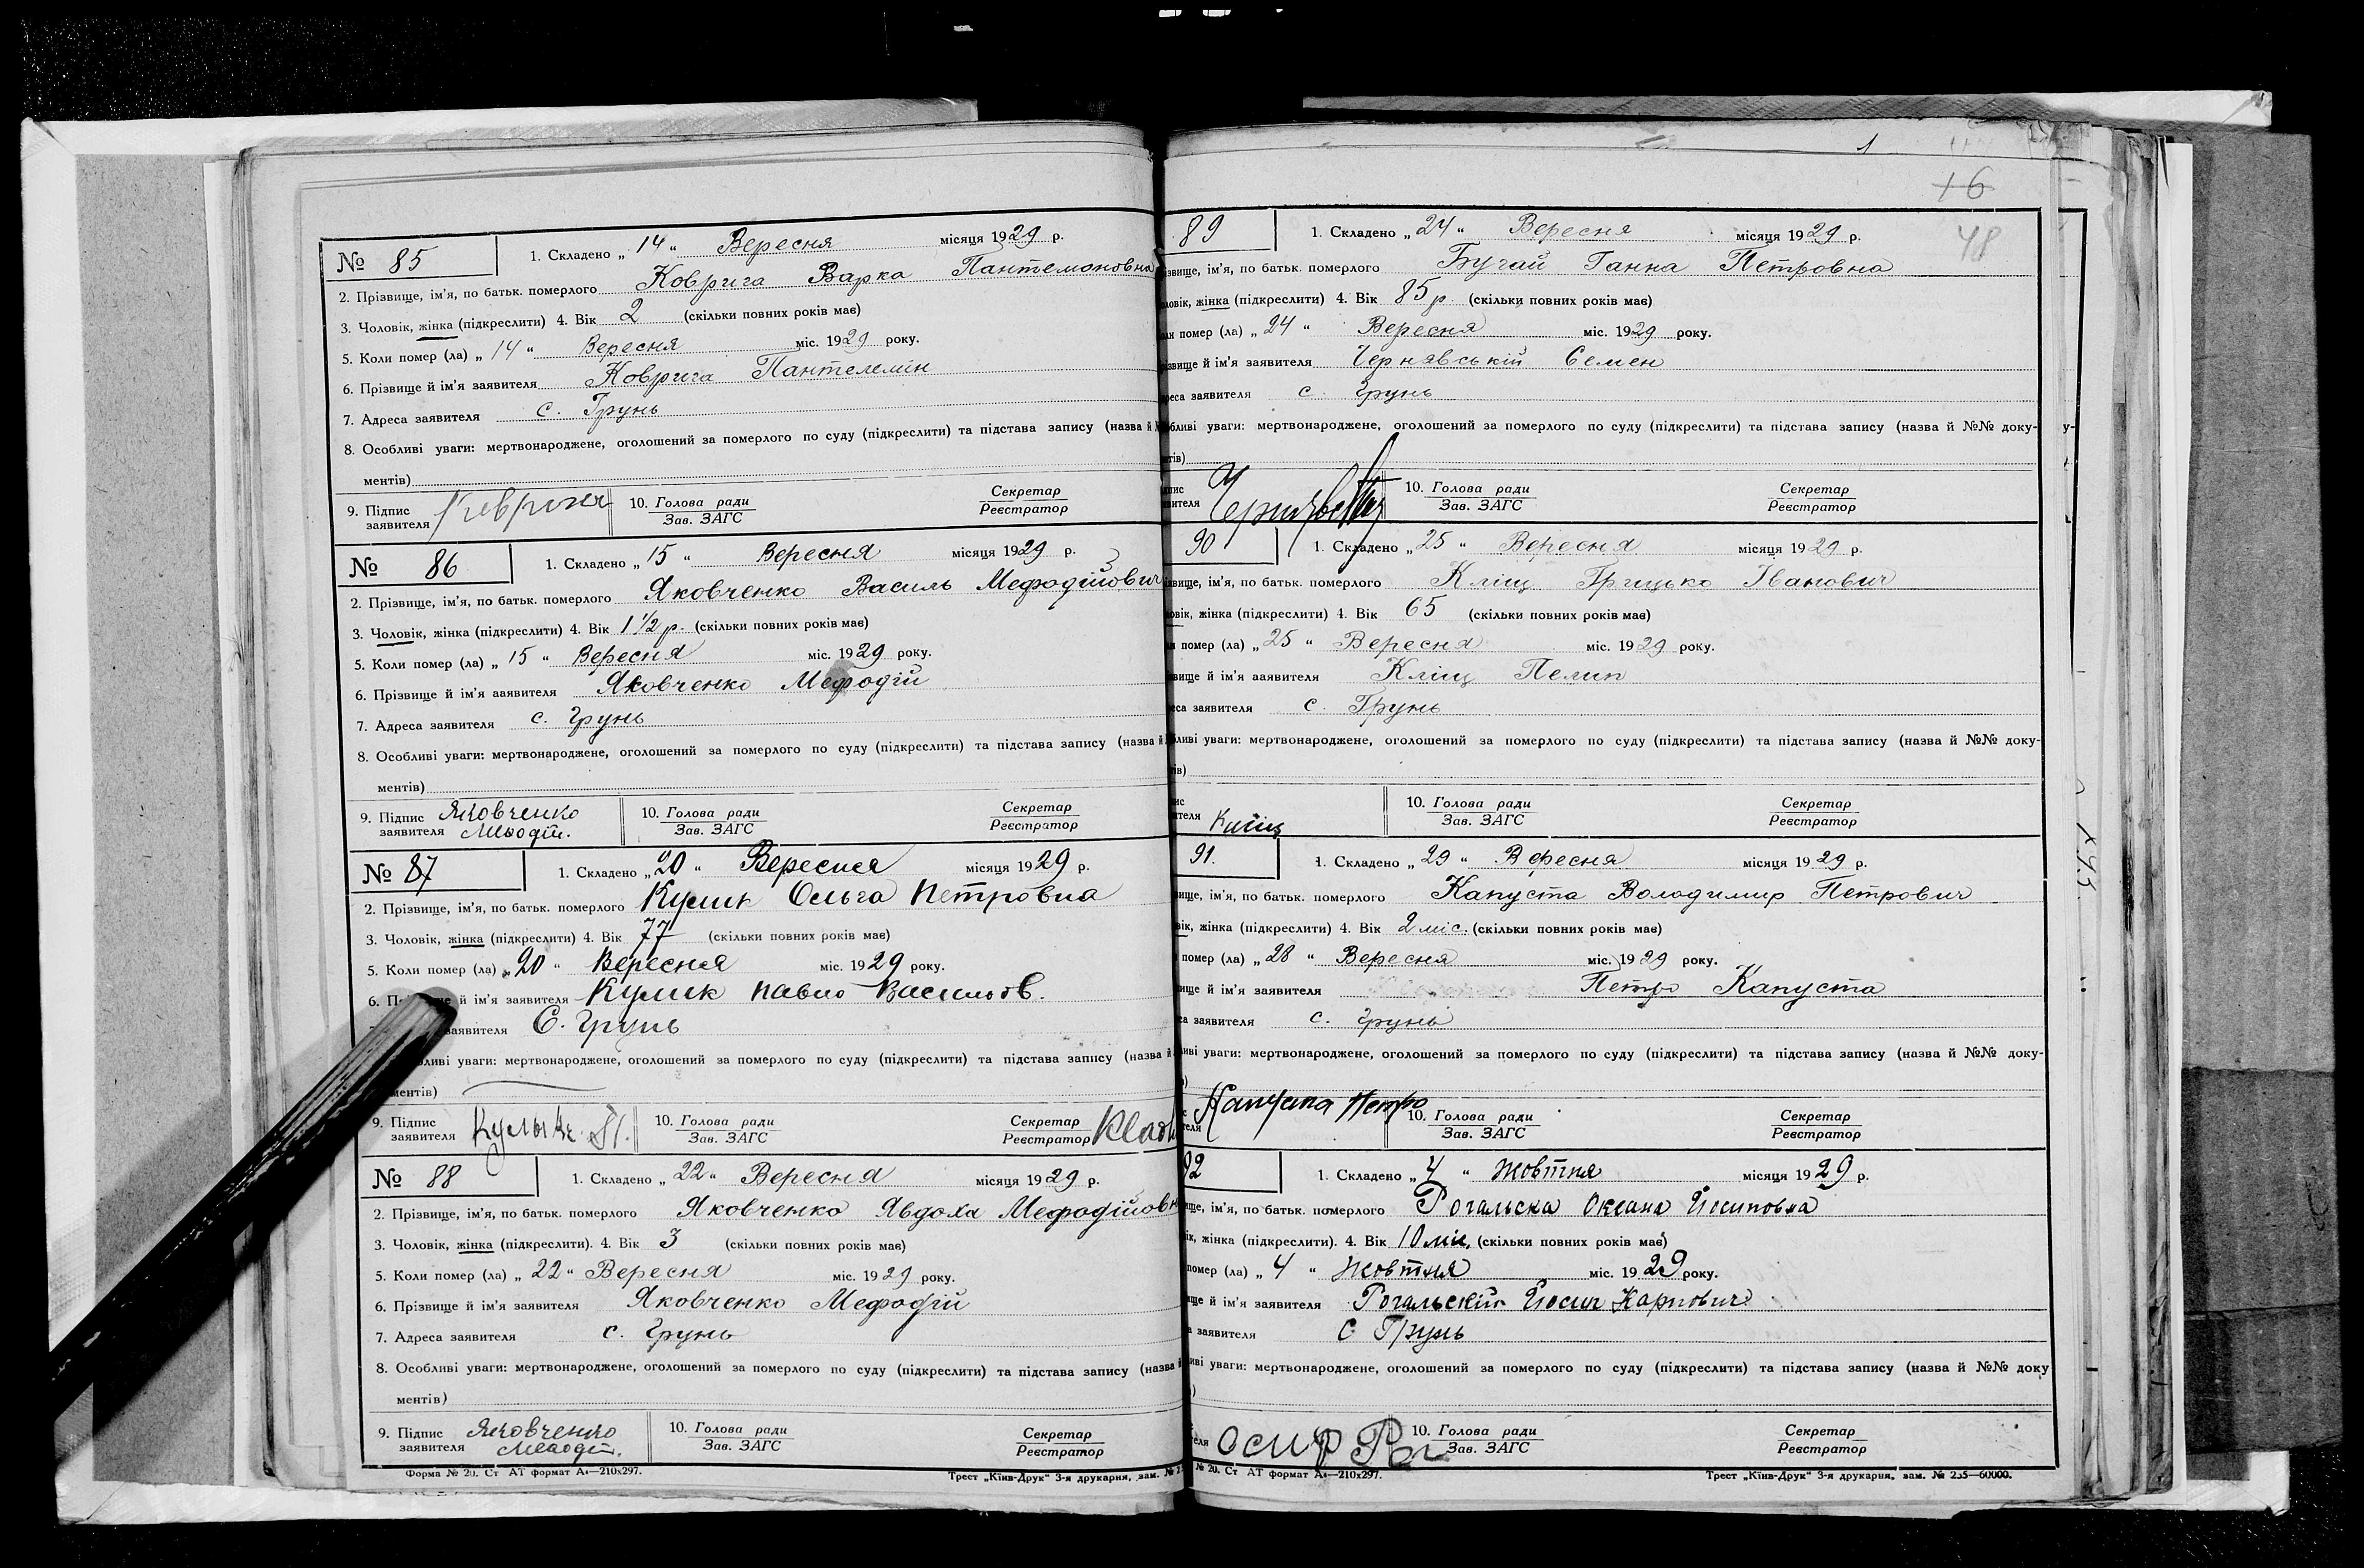 № 85 1. Складено „ 14 “ Вересня місяця 1929 р.
2. Прізвище, ім'я, по батьк. померлого Коврига Варка Пантемоновна
3. Чоловік, жінка (підкреслити) 4. Вік 2 (скільки повних років має)
5. Коли помер (ла) „ 14 “ Вересня міс. 1929 року.
6. Прізвище й ім'я заявителя Коврига Пантелемін
7. Адреса заявителя с. Грунь
8. Особливі уваги: мертвонароджене, оголошений за померлого по суду (підкреслити) та підстава запису (назва й
ментів)
9. Підпис заявителя 10. Голова ради Зав. ЗАГС Секретар Реєстратор
№ 86 1. Складено „ 15 “ Вересня місяця 1929 р.
2. Прізвище, ім'я, по батьк. померлого Яковченко Василь Мефодійович
3. Чоловік, жінка (підкреслити) 4. Вік 1 1/2 р. (скільки повних років має)
5. Коли помер (ла) „ 15 “ Вересня міс. 1929 року.
6. Прізвище й ім'я ааявителя Яковченко Мефодій
7. Адреса заявителя с. Грунь
8. Особливі уваги: мертвонароджене, оголошений за померлого по суду (підкреслити) та підстава запису (назва й
ментів)
9. Підпис заявителя Яковченко Меводій. 10. Голова ради Зав. ЗАГС Секретар Реєстратор
№ 87 1. Складено „ 20 “ Вересня місяця 1929 р.
2. Прізвище, ім'я, по батьк. померлого Кулик Ольга Петровна
3. Чоловік, жінка (підкреслити) 4. Вік 77 (скільки повних років має)
5. Коли помер (ла) „ 20 “ Вересня міс. 1929 року.
6. й ім'я заявителя Кулик Павло Васильов.
заявителя С. Грунь
уваги: мертвонароджене, оголошений за померлого по суду (підкреслити) та підстава запису (назва й
ментів)
9. Підпис заявителя Кулык П. 10. Голова ради Зав. ЗАГС Секретар Реєстратор
№ 88 1. Складено „ 22 “ Вересня місяця 1929 р.
2. Прізвище, ім'я, по батьк. померлого Яковченко Явдоха Мефодійовн
3. Чоловік, жінка (підкреслити). 4. Вік 3 (скільки повних років має)
5. Коли помер (ла) „ 22 “ Вересня міс. 1929 року.
6. Прізвище й ім'я заявителя Яковченко Мефодій
7. Адреса заявителя с. Грунь
8. Особливі уваги: мертвонароджене, оголошений за померлого по суду (підкреслити) та підстава запису (назва й
ментів)
9. Підпис заявителя Яковченко Меводі. 10. Голова ради Зав. ЗАГС Секретар Реєстратор
Форма № 20. Ст АТ формат А4—210х297. Трест „Київ-Друк“ 3-я друкарня, зам. №
1
48
89 1. Складено „ 24 “ Вересня місяця 1929 р.
ім'я, по батьк. померлого Бугай Ганна Петровна
жінка (підкреслити) 4. Вік 85 р. (скільки повних років має)
помер (ла) „ 24 “ Вересня міс. 1929 року.
й ім'я заявителя Чернявській Семен
заявителя с. Грунь
уваги: мертвонароджене, оголошений за померлого по суду (підкреслити) та підстава запису (назва й №№ доку-
10. Голова ради Зав. ЗАГС Секретар Реєстратор
90 1. Складено „ 25 “ Вересня місяця 1929 р.
ім'я, по батьк. померлого Кліщ Грицько Іванович
жінка (підкреслити) 4. Вік 65 (скільки повних років має)
помер (ла) „ 25 “ Вересня міс. 1929 року.
й ім'я ааявителя Кліщ Пелип
заявителя с. Грунь
уваги: мертвонароджене, оголошений за померлого по суду (підкреслити) та підстава запису (назва й №№ доку-
10. Голова ради Зав. ЗАГС Секретар Реєстратор
91. 1. Складено „ 29 “ Вересня місяця 1929 р.
ім'я, по батьк. померлого Капуста Володимир Петрович
жінка (підкреслити) 4. Вік 2 міс. (скільки повних років має)
помер (ла) „ 28 “ Вересня міс. 1929 року.
й ім'я заявителя Петро Капуста
заявителя с. Грунь
уваги: мертвонароджене, оголошений за померлого по суду (підкреслити) та підстава запису (назва й №№ доку-
Капуста Петро 10. Голова ради Зав. ЗАГС Секретар Реєстратор
92 1. Складено „ 4 “ Жовтня місяця 1929 р.
ім'я, по батьк. померлого Рогальска Оксана Йосиповна
жінка (підкреслити). 4. Вік 10 міс. (скільки повних років має)
помер (ла) „ 4 “ Жовтня міс. 1929 року.
й ім'я заявителя Рогальскій Йосип Карпович
заявителя С Грунь
уваги: мертвонароджене, оголошений за померлого по суду (підкреслити) та підстава запису (назва й №№ доку
Осип Рог 10. Голова ради Зав. ЗАГС Секретар Реєстратор
№ 20. Ст АТ формат А4—210х297. Трест „Київ-Друк“ 3-я друкарня, зам. № 235—60000.